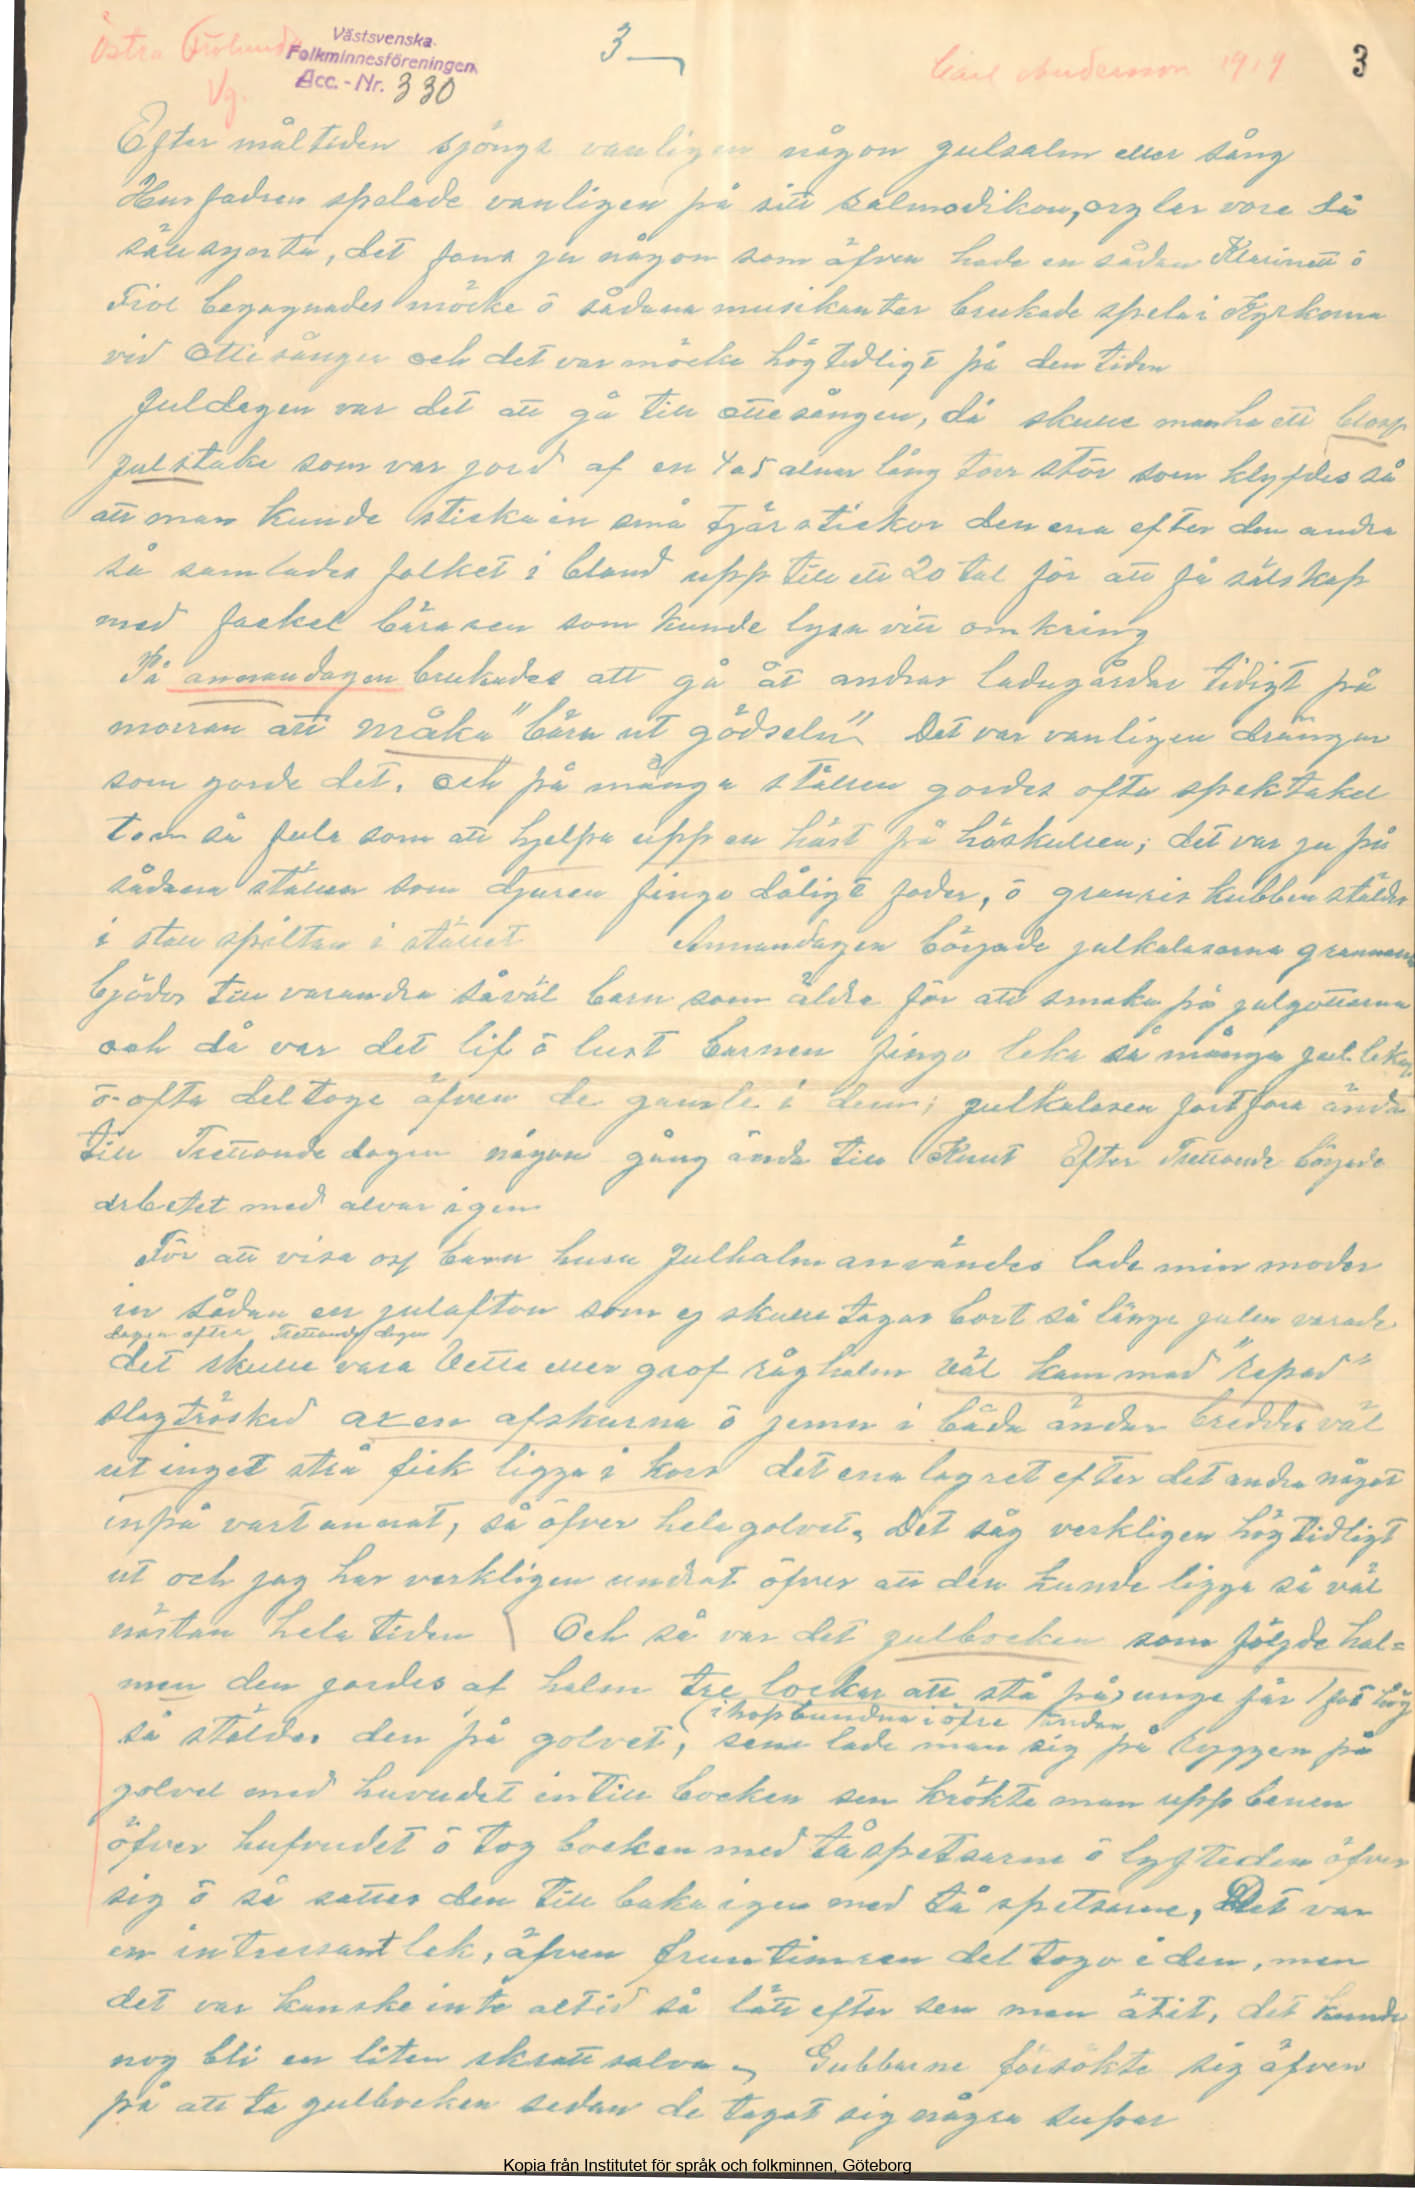 Östra Frölunda
Vg.
Västsvenska
Folkminnesföreningen
Acc.-Nr. 330
3
Carl Andersson 1919
3
Efter måltiden sjöngs vanligen någon julsalm eller sång
Husfadren spelade vanligen på sitt salmodikon, orglar vore då
sällsynta, det fans ju någon som äfven hade en sådan Klarinett ö
Fiol begagnades möcke ö sådana musikanter brukade spela i Kyrkorna
vid ottesången och det var möcke högtidligt på den tiden
Juldagen var det att gå till ottesången, då skulle man ha ett bloss
julstake som var jord af en 4 a 5 alnar lång torr stör som klyfdes så
att man kunde sticka in små Tjärstickor den ena efter den andra
så samlades folket i bland upp till ett 20 tal för att få sälskap
med fackel bäraren som kunde lysa vitt omkring
På annandagen brukades att gå åt andras ladugårdar tidigt på
morran att måka "bära ut gödseln" Det var vanligen drängar
som gorde det. och på många ställen gordes ofta spektakel
tom så fula som att hjelpa upp en häst på höskullen; det var ju på
sådana ställen som djuren fingo dåligt foder, ö granris kubben stäldes
i stall spiltan i stället Annandagen började julkalasarna grannarna
bjödos till varandra såväl barn som äldre för att smaka på julgottarna
och då var det lif ö lust barnen fingo leka så många jul lekar
ö ofta deltoge äfven de gamle i dem; julkalasen fortfora ända
till Trettonde dagen någon gång ända till Knut Efter Trettonde började
arbetet med alvar igen
För att visa oss barn huru Julhalm användes lade min moder
in sådan en julafton som ej skulle tagas bort så länge julen varade
dagen efter Trettonde dagen
det skulle vara Vette eller grof råghalm väl kammad "repad"
slagtröskad axen afskurna ö jemn i båda ändar breddes väl
ut inget strå fick ligga i kors det ena lagret efter det andra något
inpå vart annat, så öfver hela golvet. Det såg verkligen högtidligt
ut och jag har verkligen undrat öfver att den kunde ligga så väl
nästan hela tiden Och så var det julbocken som följde hal=
men den gordes af halm tre lockar att stå på, unge fär 1 fot hög
(ihopbundna i öfre ändan
så stäldes den på golvet, sene lade man sig på ryggen på
golvet med huvudet intill bocken sen krökte man upp benen
öfver hufvudet ö tog bocken med tåspetsarne ö lyfte den öfver
sig ö så sattes den till baka igen med tå spetsarne, Det var
en intressant lek, äfven fruntimren del togo i den, men
det var kanske inte altid så lätt efter sen man ätit, det kunde
nog bli en liten skratt salva Gubbarne försökte sig äfven
på att ta julbocken sedan de tagat sig några supar
Kopia från Institutet för språk och folkminnen, Göteborg